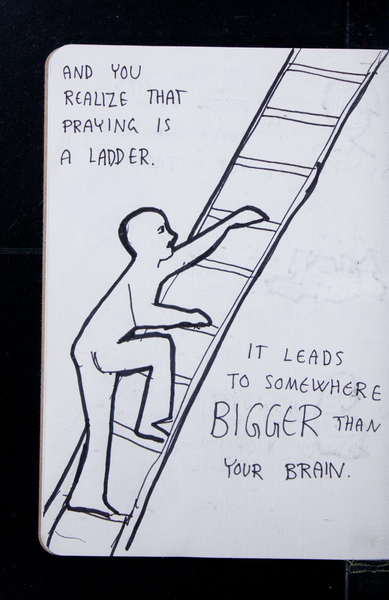 AND YOU
REALIZE THAT
PRAYING IS
A LADDER.
IT LEADS
TO SOMEWHERE
BIGGER THAN
YOUR BRAIN.